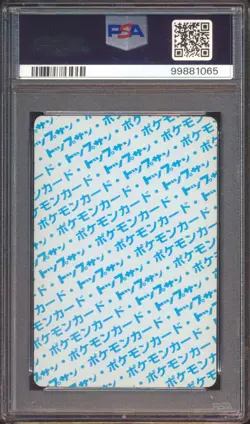 PSA
99881065
トップサン・ポケモンカード
ポケモンカード・トップサン
トップサン・ポケモンカード
ポケモンカード・トップサン
トップサン・ポケモンカード
ポケモンカード・トップサン
トップサン・ポケモンカード
ポケモンカード・トップサン
トップサン・ポケモンカード
ポケモンカード・トップサン
トップサン・ポケモンカード